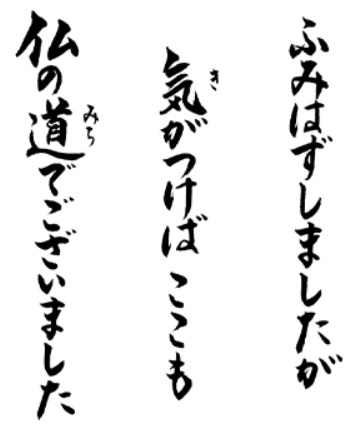 ふみはずしましたが
気がつけばここも
仏の道でございました